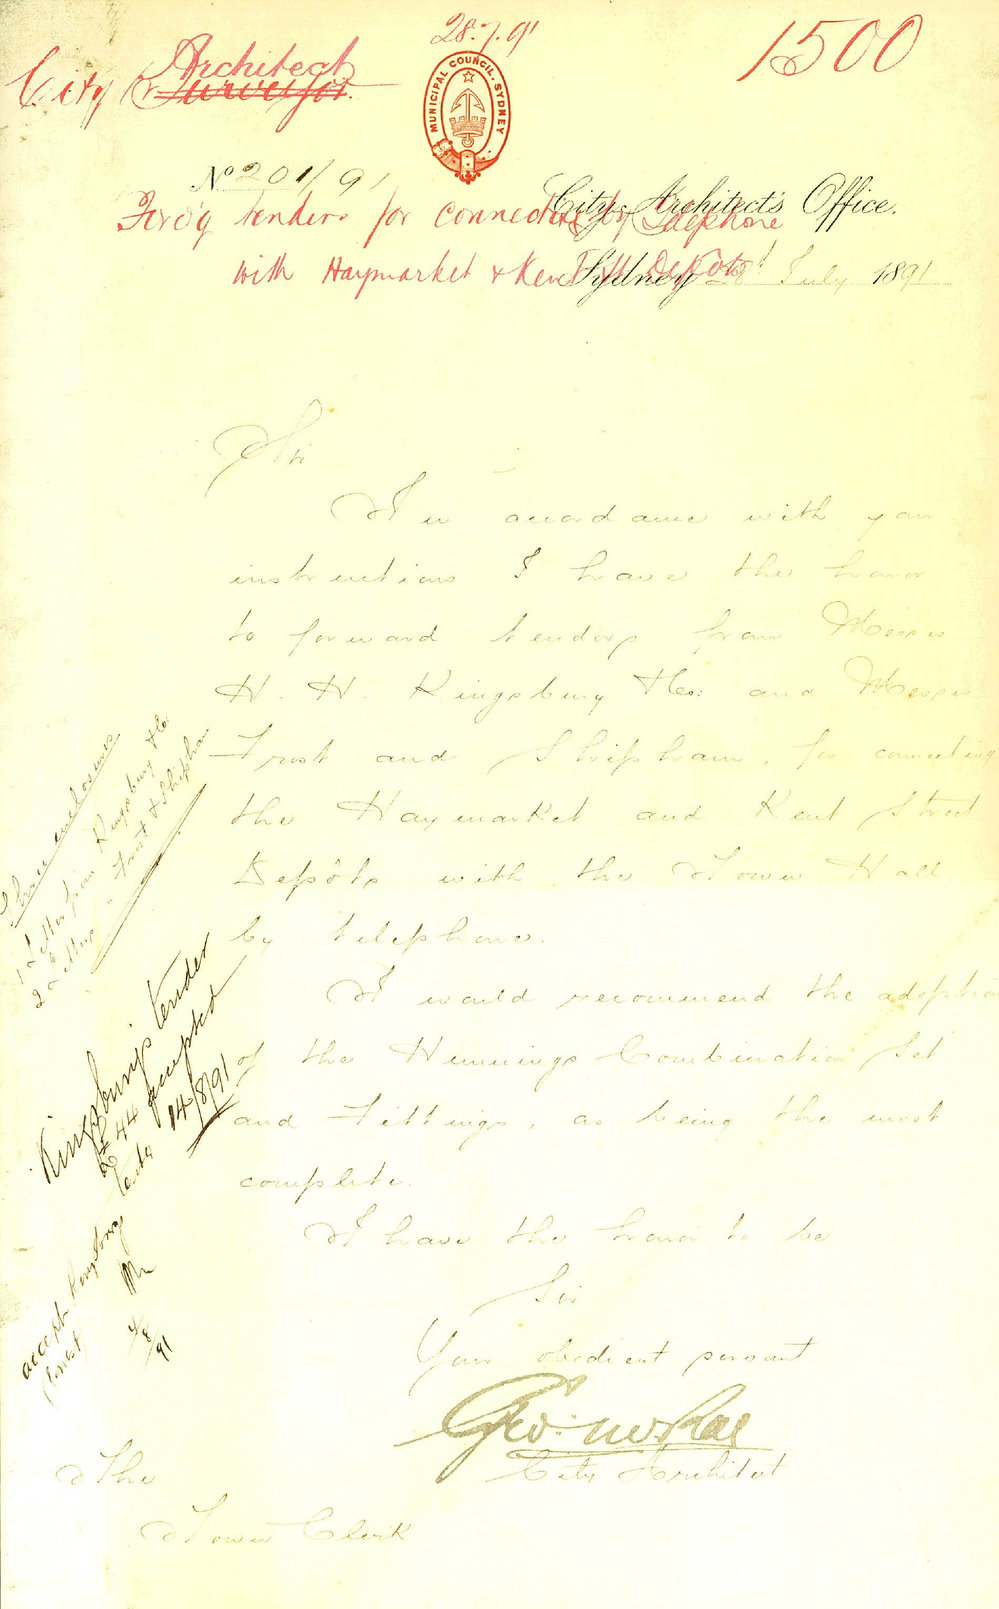 28.7.91
1500
City Architect
Surveyor.
MUNICIPAL COUNCIL. SYDNEY
No 201/91
City Architect's Office.
Ford'g tenders for connecting by Telephone
with Haymarket & Kent St Depots
Sydney 28 July 1891
Sir
In accordance with your
instructions I have the honor
to forward tenders from Messrs
H. H. Kingsbury & Co: and Messrs
Trost and Shipham, for connecting
the Haymarket and Kent Street
Depôts with the Town Hall
by telephone.
I would recommend the adoption
of the Hennings Combination Set
and Fittings, as being the most
complete.
I have the honor to be
Sir
Your obedient servant
Geo. McRae
City Architect
The
Town Clerk
3 have enclosures
1 Letter from Kingsbury & Co.
2 " Trost & Shipham
Kingsbury's tender
£44 accepted
14/8/91
accept Kingsbury
lowest
4/8/91